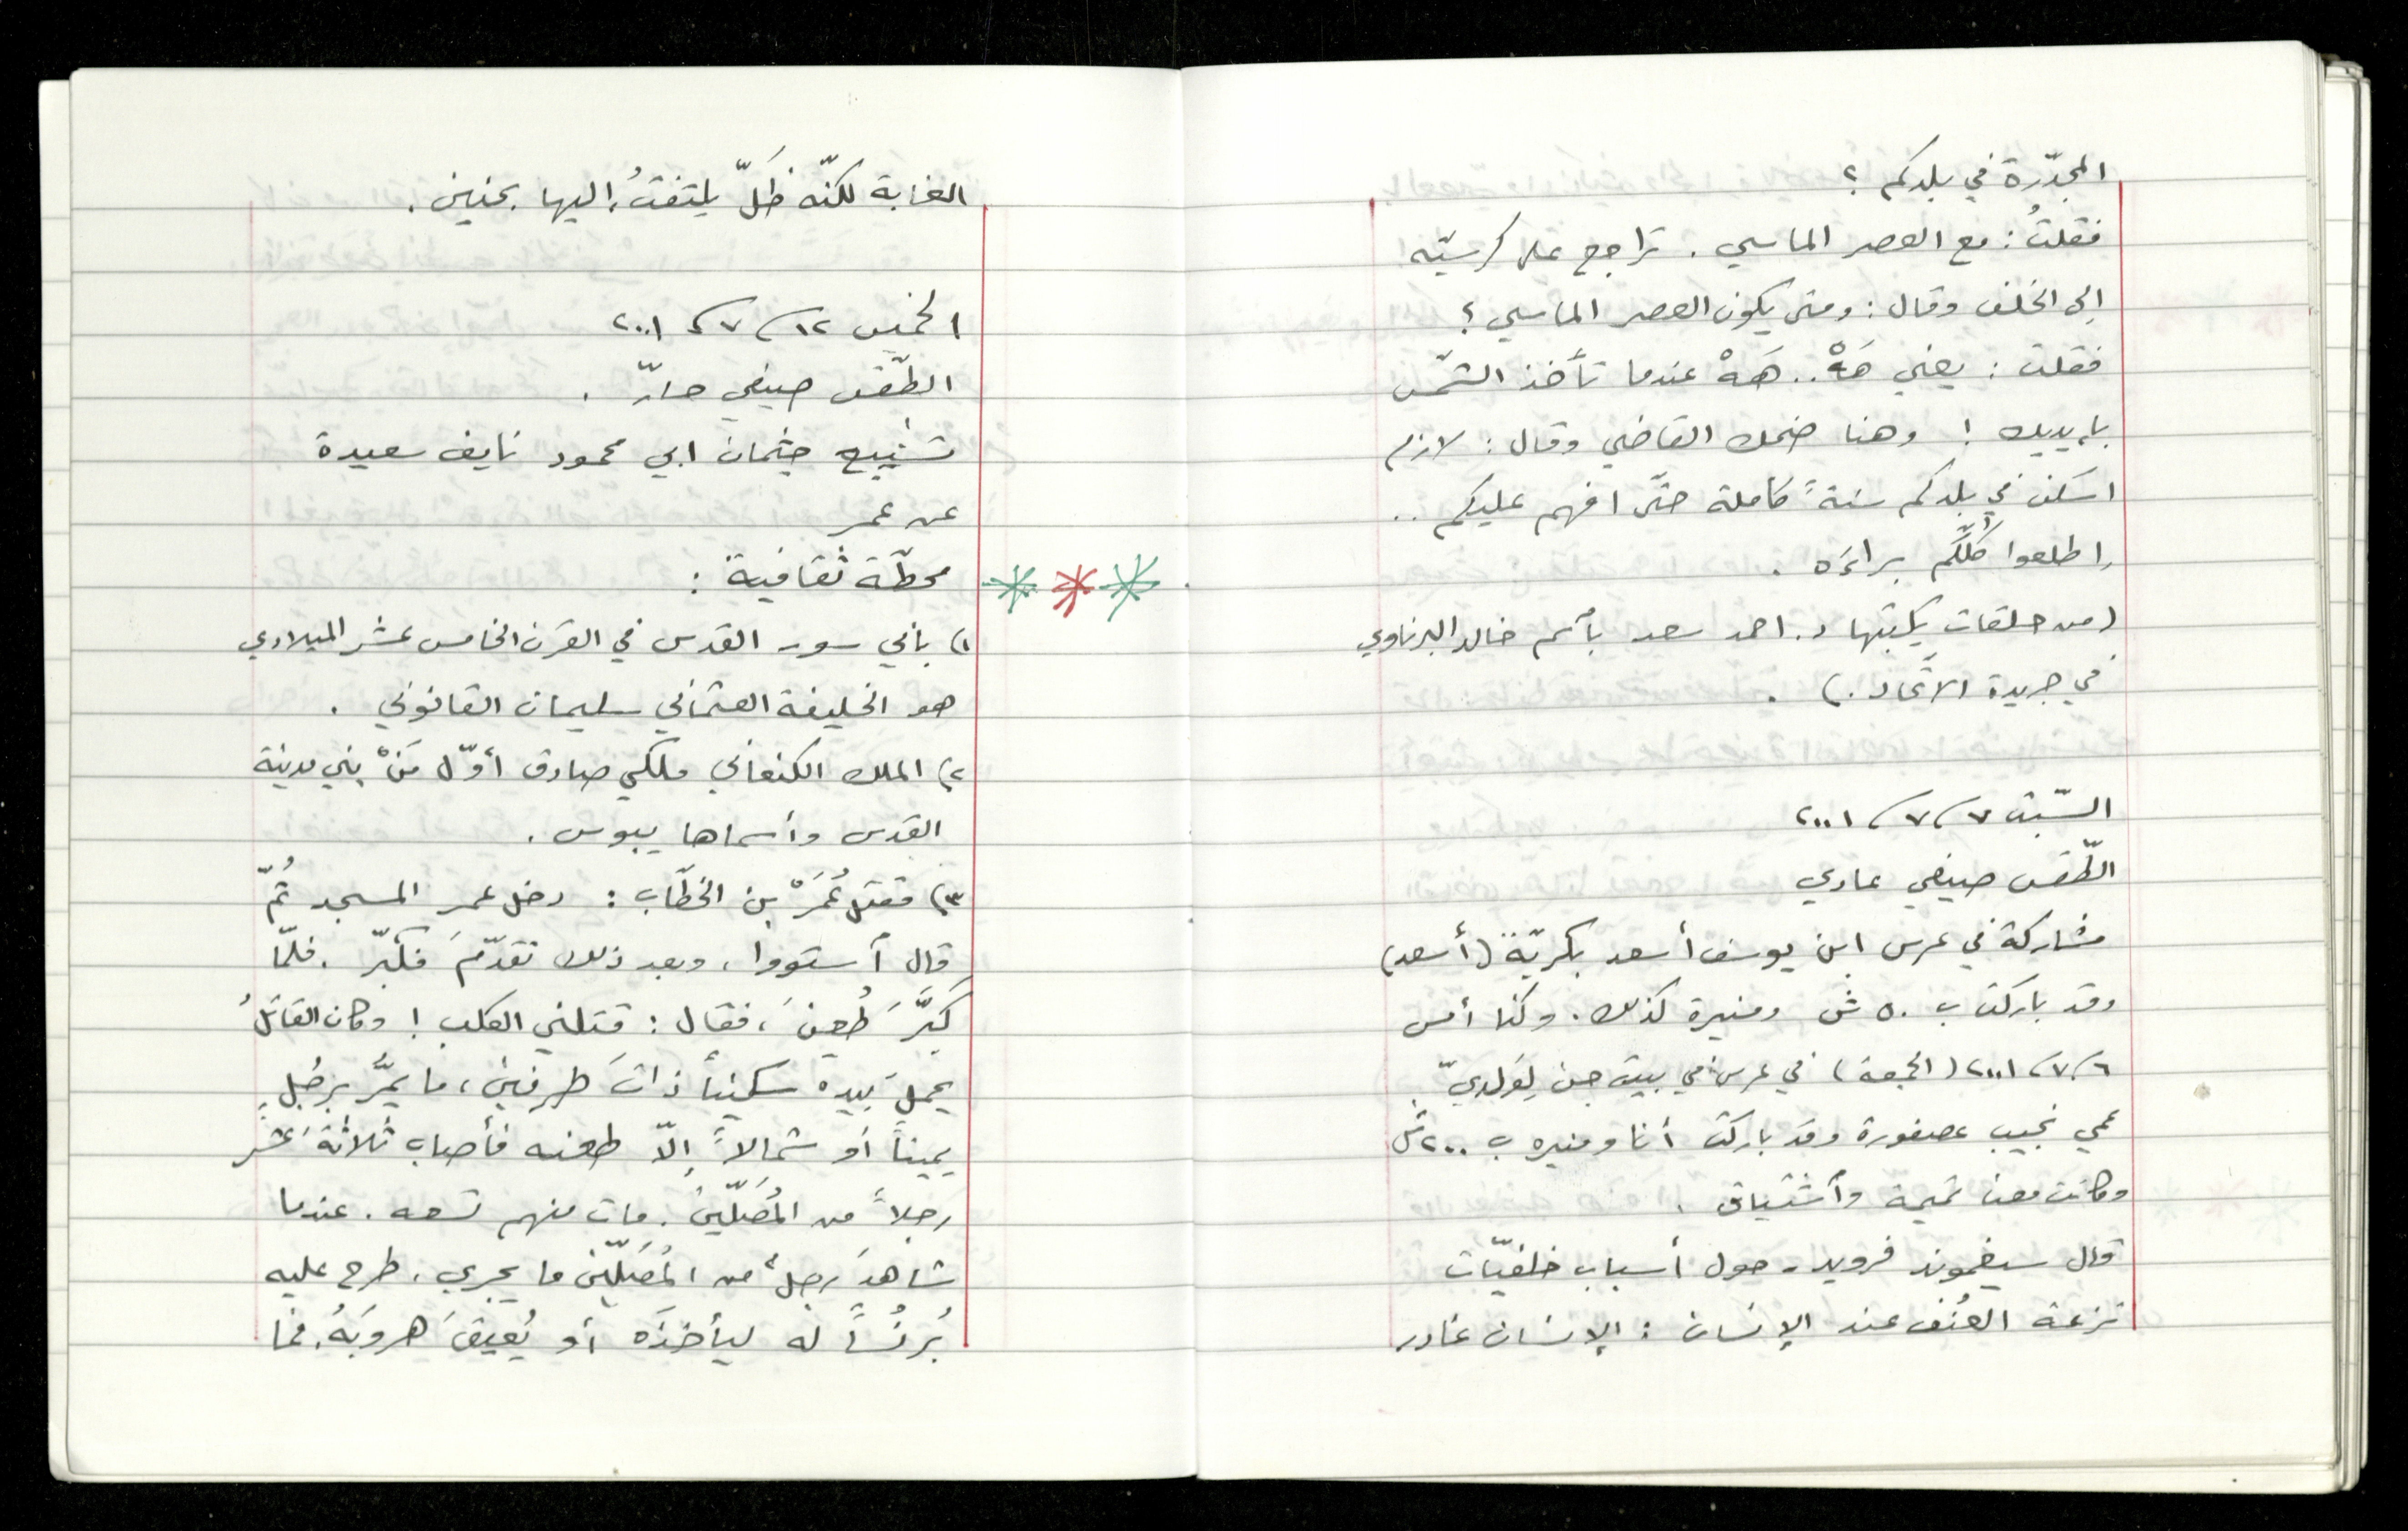 المجدّرة في بلدكم ؟
فقلتُ : مع العصر الماسي . تراجع على كرسيّه
إلى الخلف وقال : ومتى يكون العصر الماسي ؟
فقلت : يعني هَهْ .. هَهْ عندما تأخذ الشّمس
بإيديك ! وهنا ضحك القاضي وقال : لازم
اسكن في بلدكم سنةً كاملة حتّى افهم عليكم ..
إطلعوا كُلّكُم براءَه .
(من حلقات يكتبها د. احمد سعد بأسم خالد البرناوي
في جريدة الاتّحاد .) .
السّبت ٧ / ٧ / ٢٠٠١
الطّقس صيفي عادي
مشاركة في عرس ابن يوسف أسعد بكريّة (أسعد)
وقد باركت ب ٥٠ ش ومنيرة كذلك . وكنا أمس
٦ / ٧ / ٢٠٠١ (الجمعة) في عرس في بيت جن لِوَلديّ
عمي نجيب عصفورة وقد باركت أنا ومنيره ب ٢٠٠ ش
وكانت معنا تميمة وأشتياق .
قال سيغموند فرويد - حول أسباب خلفيّات
نزعة العُنف عند الإنسان : الإنسان غادر
الغابة لكنّه ظَلّ يلتفتُ إليها بحنين .
الخميس ١٢ / ٧ / ٢٠٠١
الطّقس صيفي حارّ .
تشييع جثمان ابي محمود نايف سعيدة
عن عمر
محطّة ثقافية :
١) باني سور القدس في القرن الخامس عشر الميلادي
هو الخليفة العثماني سليمان القانوني .
٢) الملك الكنعاني ملكي صادق أوّل مَنْ بني مدينة
القدس وأسماها يبوس .
٣) مقتل عُمَرْ بن الخطّاب : دخل عمر المسجد ثُمّ
قال أستووا ، وبعد ذلك تقدّمَ فكبّر . فلمّا
كَبَّرَ طُعِنَ ، فقال : قتلني الكلب ! وكان القاتلُ
يحملُ بيده سكيناً ذاتَ طرفين ، ما يمُّر برجُلٍ
يميناً أو شمالاً إلّا طعنه فأصاب ثلاثةَ عشَر
رجلاً من المُصَلّينَ . مات منهم تسعه . عندما
شاهدَ رجلٌ من المُصَلّين ما يجري ، طرح عليه
بُرنُساً له ليأخذَه أو يُعيقَ هروبَهُ . فما